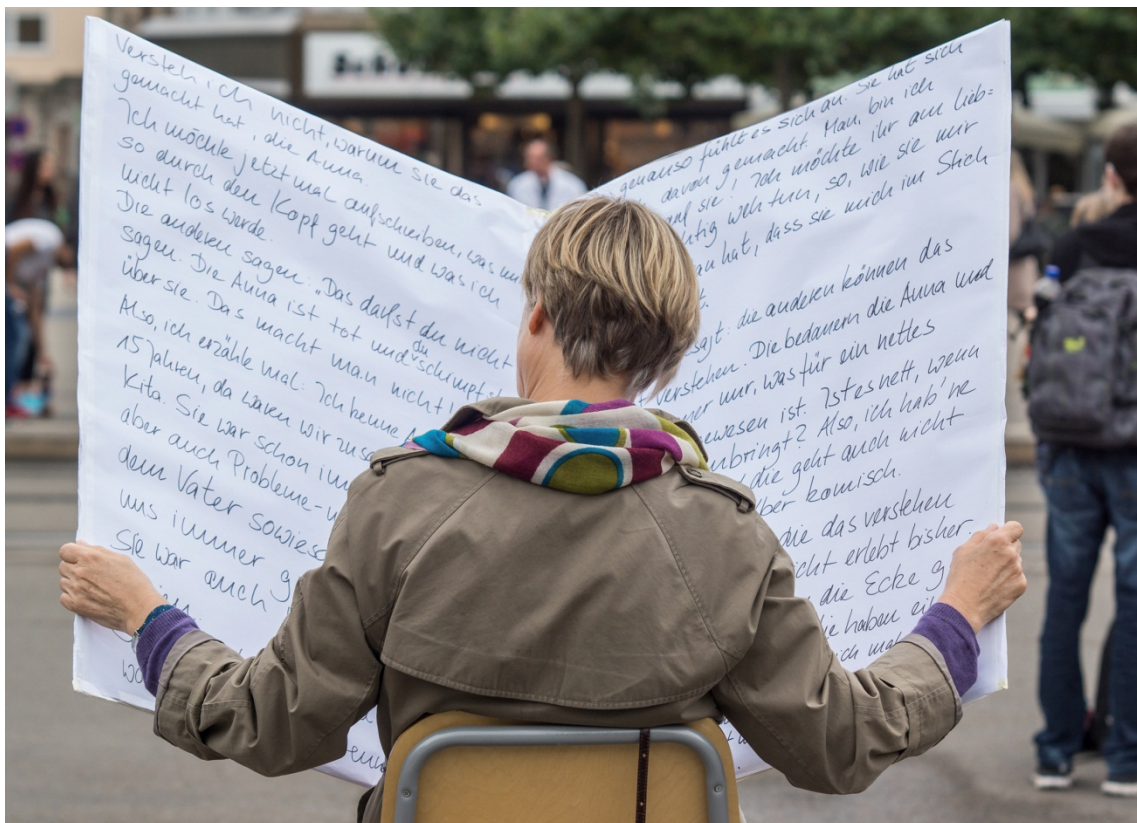 Versteh ich nicht, warum sie das
gemacht hat, die Anna
Ich möchte jetzt mal aufschreiben, was
so durch den Kopf geht und was ich
nicht los werde.
Die anderen sagen: „Das darfst du nicht
sagen. Die Anna ist tot und du schimpfst
über sie. Das macht man nicht
Also, ich erzähle mal: Ich kenne
15 Jahren, da waren wir
Kita. Sie war schon
aber auch Probleme
dem Vater
uns immer
Sie war auch
genauso fühlt es sich an. Sie hat sich
davon gemacht. Man, bin ich
auf sie! Ich möchte ihr am lieb=
weh tun, so, wie sie mir
hat, dass sie mich im Stich
die anderen können das
verstehen. Die bedauern die Anna und
nur, was für ein nettes
gewesen ist. Ist es nett, wenn
Also, ich hab'ne
die geht auch nicht
komisch.
die das verstehen
erlebt bisher.
die Ecke
haben